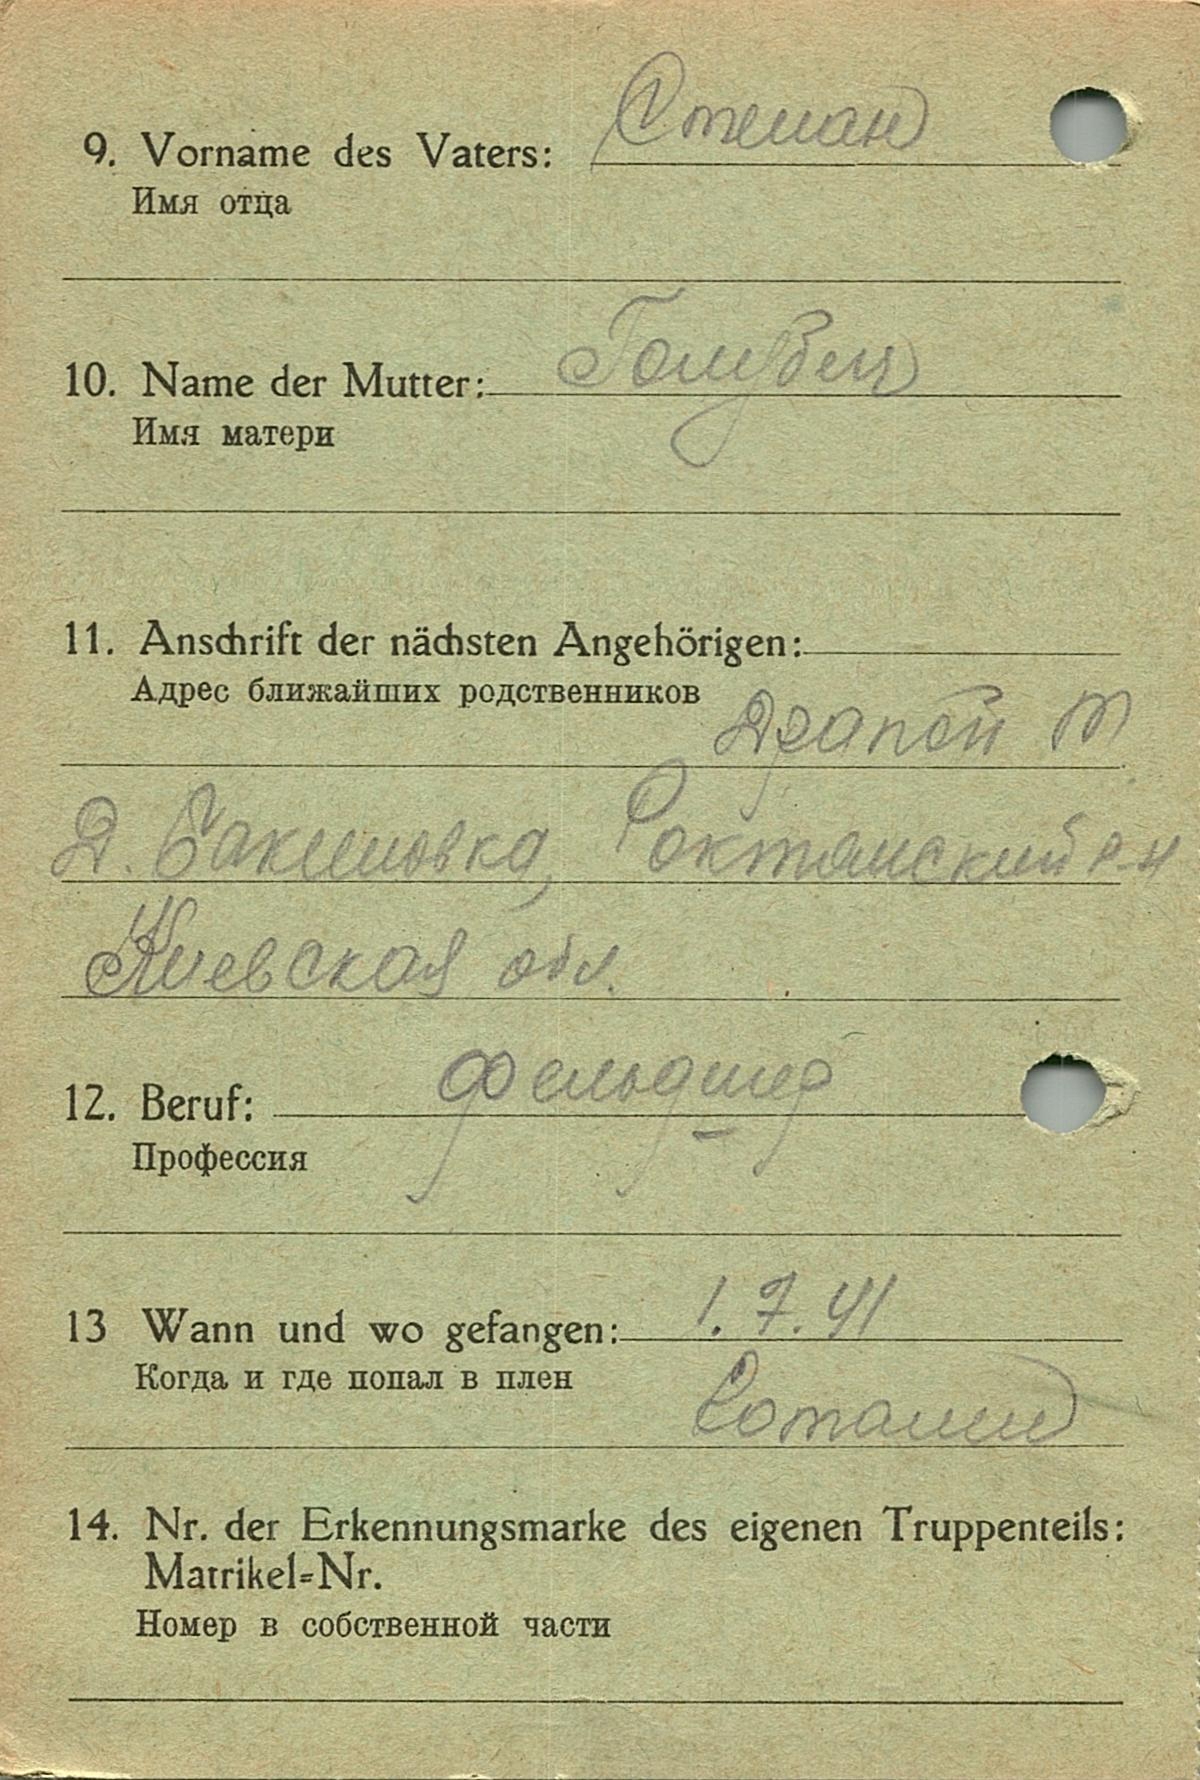 9. Vorname des Vaters: Степан
Имя отца
10. Name der Mutter: Голубец
Имя матери
11. Anschrift der nächsten Angehörigen:
Адрес ближайших родственников
Драпей М
Д.
Киевская обл.
12. Beruf: Фельдшер
Профессия
13 Wann und wo gefangen: 1.7.41
Когда и где попал в плен
14. Nr. der Erkennungsmarke des eigenen Truppenteils:
Matrikel=Nr.
Номер в собственной части